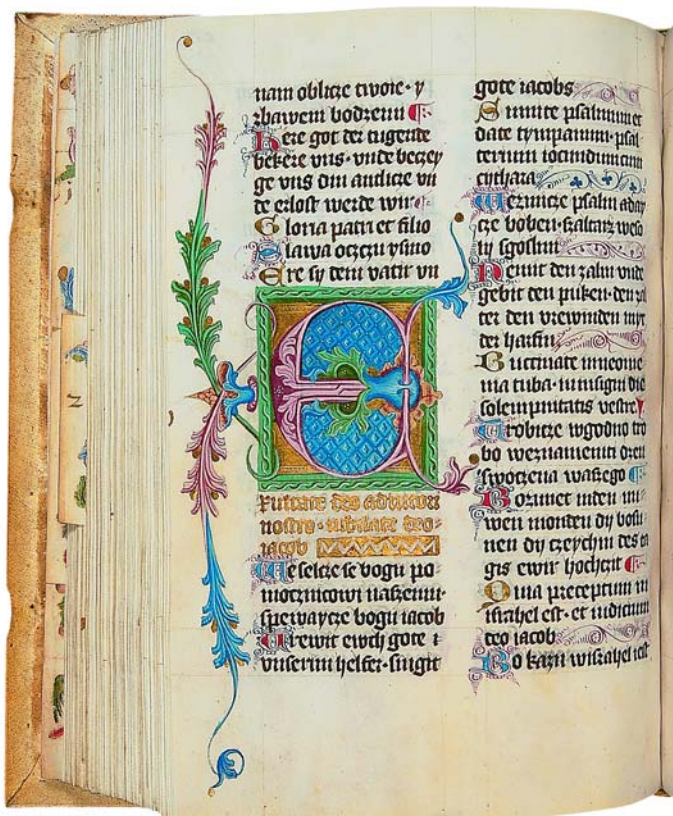 nam oblicze twoie · y
zbawem bodzem
Here got der tugende
bekere vns · vnde beczey
ge vns din anclicze vn
de erlost werde wir
Gloria patri et filio
Slawa oczczu ysino
Ere sy dem vatir vn
E
Xultate deo adiutori
nostro · iubilate deo
iacob
Weselcze se bogu po
mocznicowi naszemu ·
spewaycze bogu iacob
Vrewit ewch gote i
vnserim helfer · singit
gote iacobs
Sumite psalmum et
date tympanum · psal
terium iocundum cum
cythara
Wezmicze psalm a day
cze boben · szaltarz weso
ly sgoslmi
Nemit den zalm vnde
gebit den puken · den zal
ter den vrewinden myt
der harfin
Buccinate in neome
nia tuba · in insigni die
solempnitatis vestre
Trobicze wgodno tro
bo weznameniti dzen
swoczena waszego
Bozunet in den nu
wen monden dy bosu
nen dy czeychin des ta
gis ewir hochczit
Quia preceptum in
israhel est · et iudicium
deo iacob
Bo kazn wisrahel iest